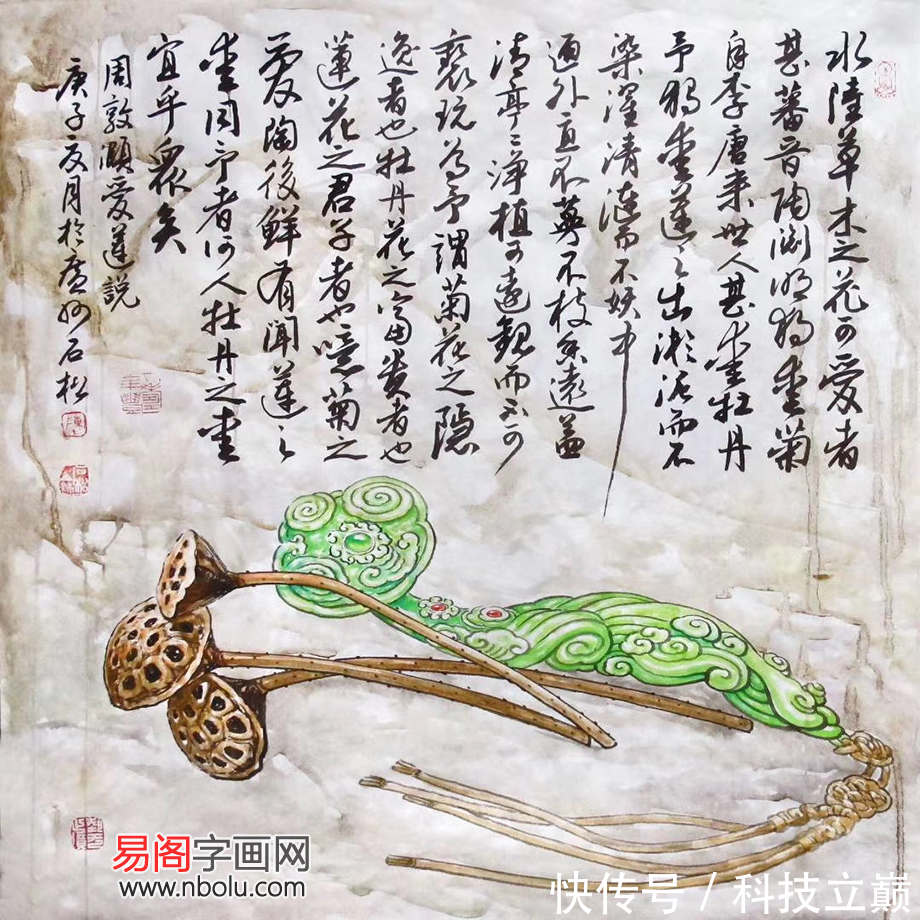 水陸草木之花可愛者
甚蕃晉陶淵明獨愛菊
自李唐来世人甚愛牡丹
予獨愛蓮之出淤泥而不
染濯清漣而不妖中
通外直不蔓不枝香遠益
清亭亭淨植可遠觀而不可
褻玩焉予謂菊花之隱
逸者也牡丹花之富貴者也
蓮花之君子者也噫菊之
愛陶後鮮有聞蓮之
愛同予者何人牡丹之愛
宜乎衆矣
周敦頤愛蓮説
庚子夏月於廬州石松
易阁字画网
www.nbolu.com
快传号 / 科技立巅